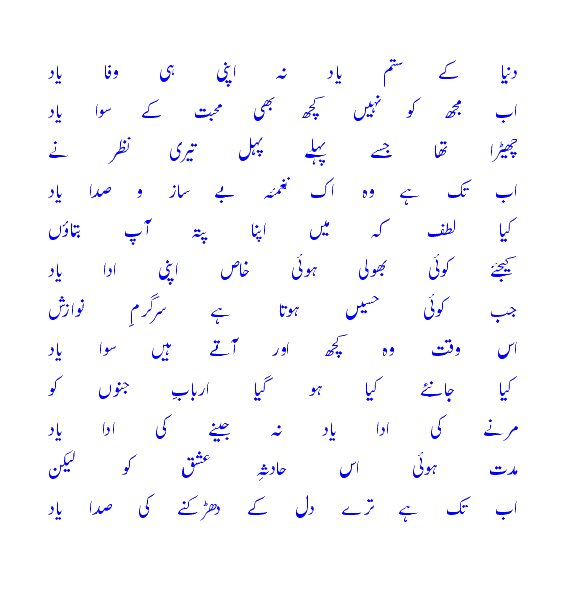 دنیا کے ستم یاد نہ اپنی ہی وفا یاد
اب مجھ کو نہیں کچھ بھی محبت کے سوا یاد
چھیڑا تھا جسے پہلے پہل تیری نظر نے
اب تک ہے وہ اک نغمئہ بے ساز و صدا یاد
کیا لطف کہ میں اپنا پتہ آپ بتاؤں
کیجئے کوئی بھولی ہوئی خاص اپنی ادا یاد
جب کوئی حسیں ہوتا ہے سرگرمِ نوازش
اس وقت وہ کچھ اور آتے ہیں سوا یاد
کیا جانئے کیا ہو گیا اربابِ جنوں کو
مرنے کی ادا یاد نہ جینے کی ادا یاد
مدت ہوئی اس حادثہِ عشق کو لیکن
اب تک ہے ترے دل کے دھڑکنے کی صدا یاد